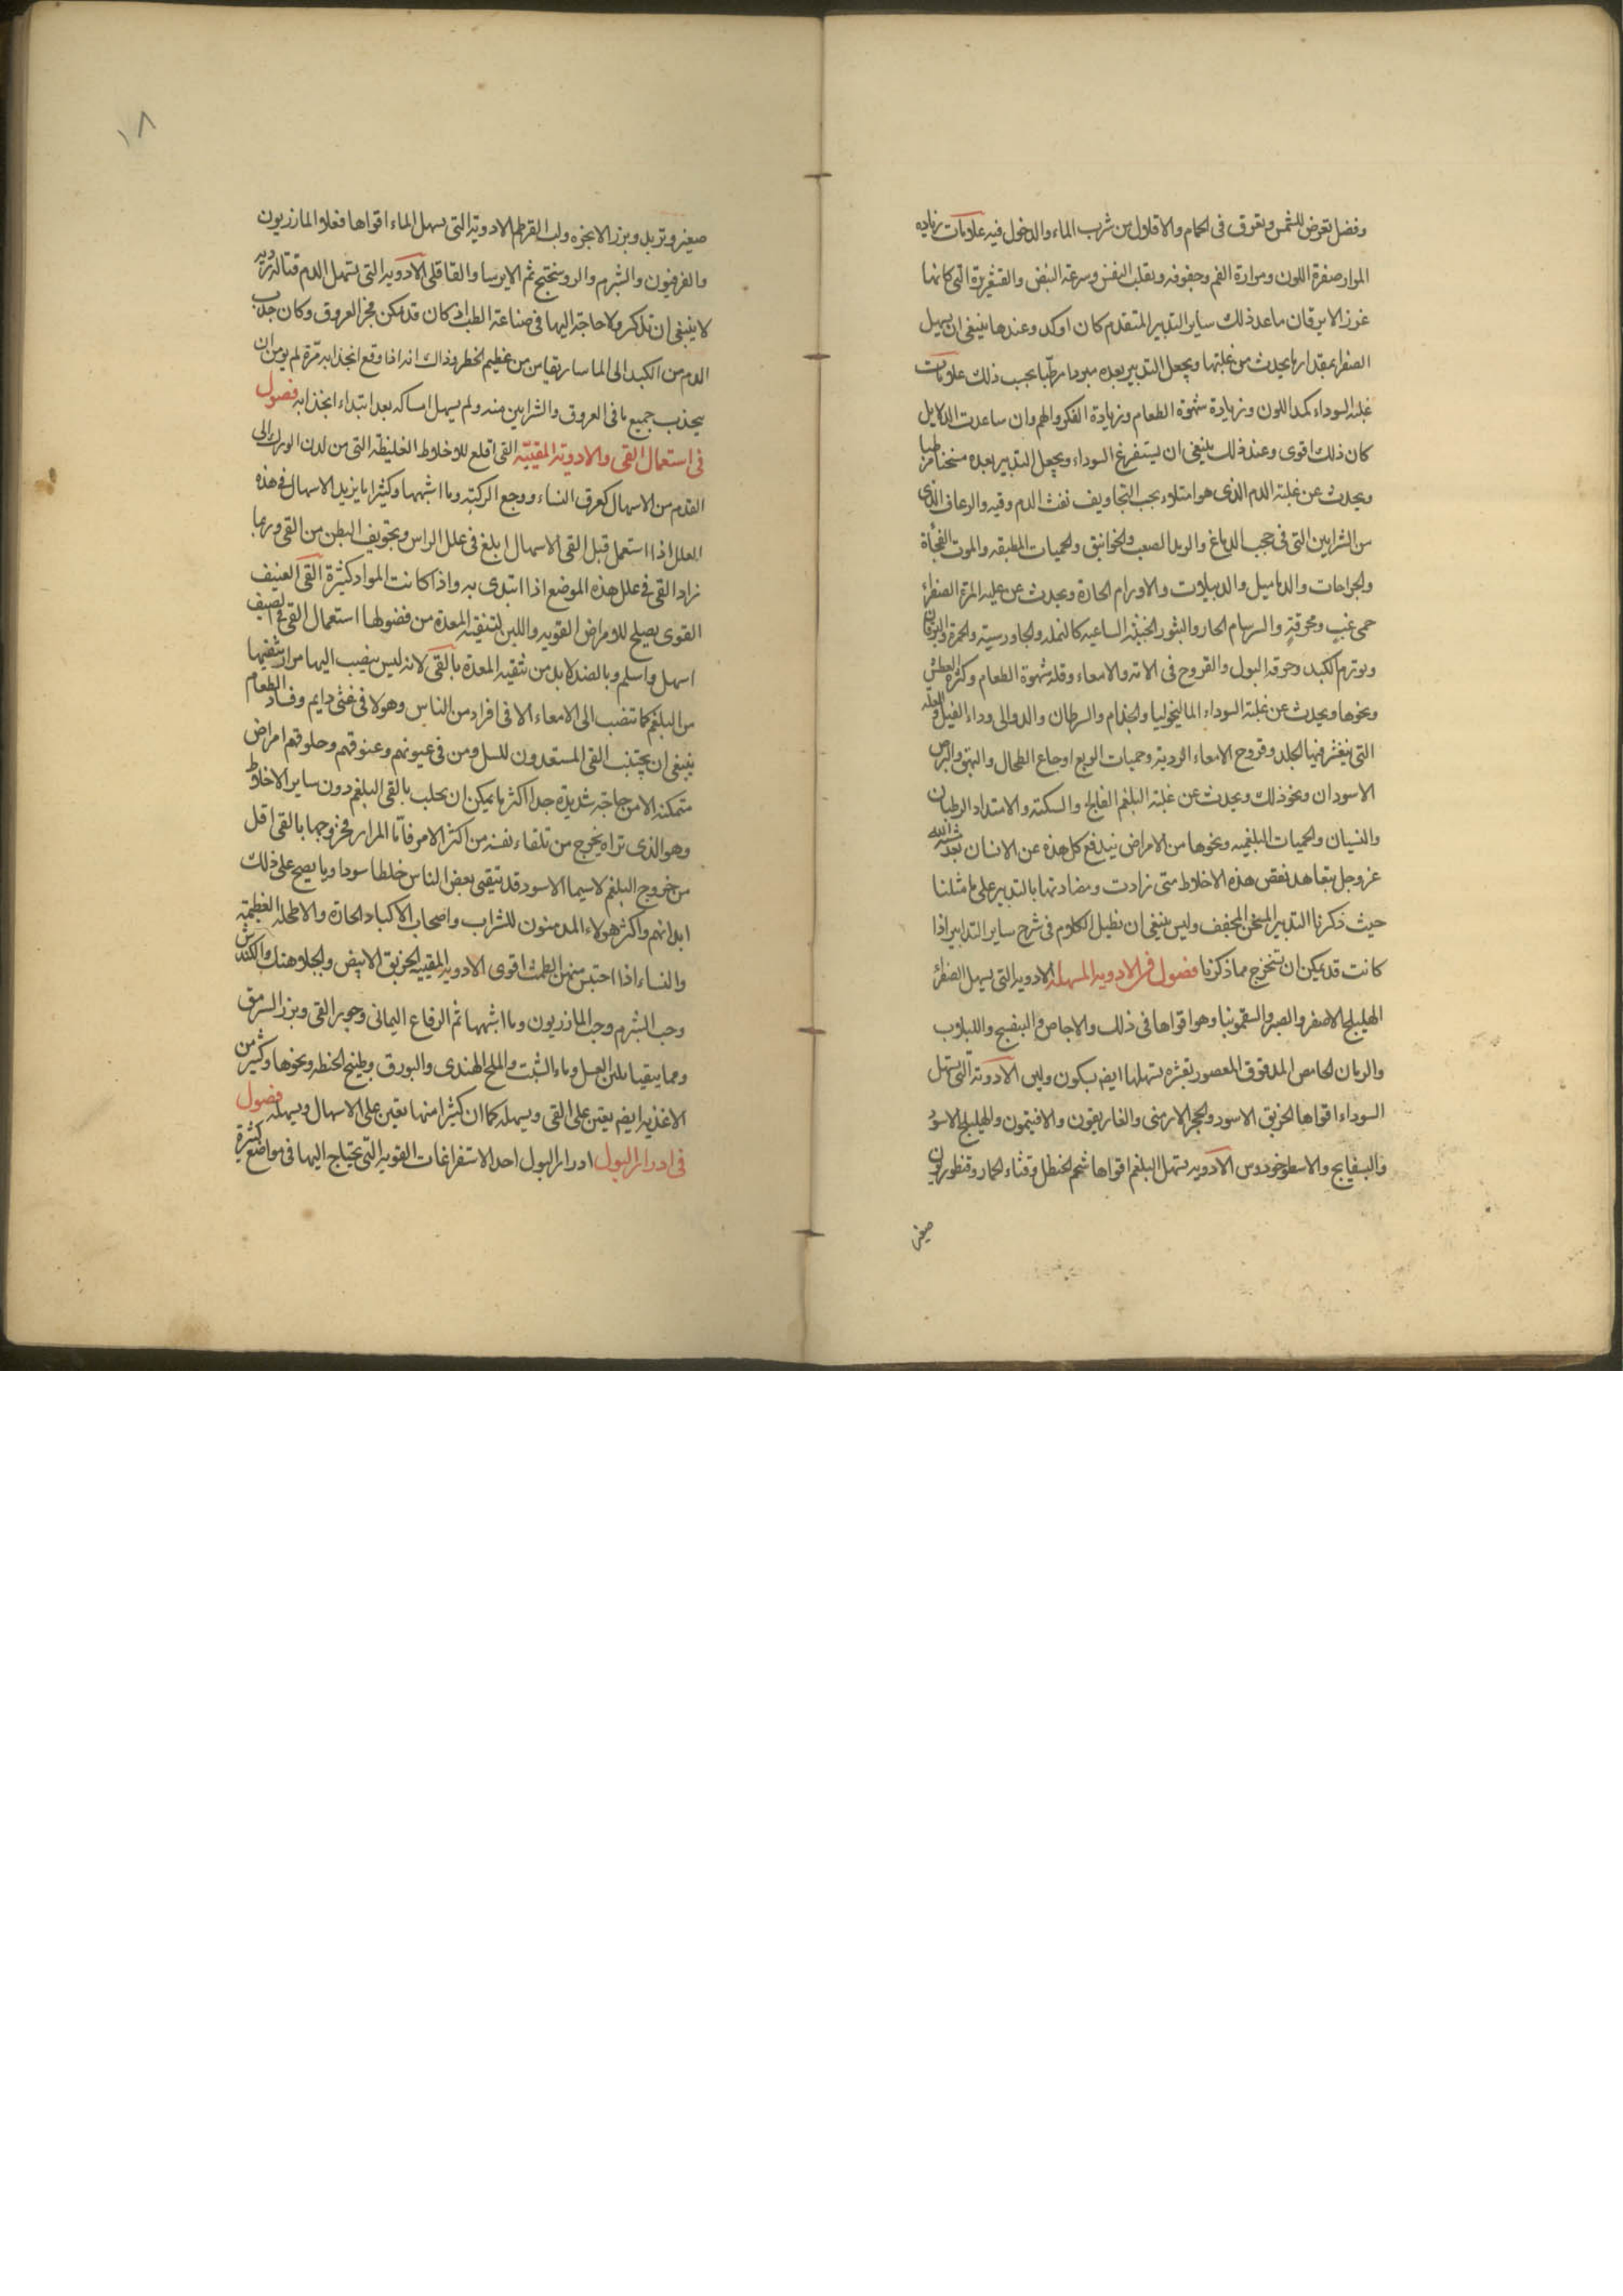 وفضل تعرض للشمس وتعرق في الحمام والاقلال من شرب الماء والدخول فيه علامات زياده
المرار صفرة اللون ومرارة الفم وجفوفه وتقلب النفس وسرعة النبض والقشعريرة التي كانها
غرز الابر فان ما عد ذلك ساير التدبير المتقدم كان اوكد وعندها ينبغي ان يسهل
الصفرا بمقدار ما يحدث من غلبتها ويجعل التدبير بعده مبردا مرطبا بحسب ذلك علامات
غلبة السوداء كمد اللون وزيادة شهوة الطعام وزيادة الفكر والهم وان ساعدت الدلايل
كان ذلك اقوى وعند ذلك ينبغي ان يستفرغ السوداء ويجعل التدبير بعده مسخنا مرطبا
ويحدث عن غلبة الدم الذي هو امتلاء بحب التجاويف نفث الدم وقيه والرعاف الذي
من الشرايين التي في حجب الدماغ والرمد الصعب والخوانيق والحميات المطبقه والموت الفجأة
والجراحات والدماميل والدبيلات والاورام الحارة ويحدث عن غلبة المرة الصفراء
حمى غب ومحرقة والسرسام الحار والبثور الخبيثه الساعيه كالنمله والجاورسية والحمرة واليرقان
وتورم الكبد وحرقه البول والقروح في الاته والامعاء وقلة شهوة الطعام وكثرة العطش
ونحوها ويحدث عن غلبة السوداء الماليخوليا والجذام والسرطان والدوالي وداء الفيل والعله
التي ينقشر فيها الجلد وقروح الامعاء الردية وحميات الربع اوجاع الطحال والبهق والبرص
الاسودان ونحو ذلك ويحدث عن غلبة البلغم الفالج والسكته والامتداد الرطبان
والنسيان والحميات البلغميه ونحوها من الامراض نيدفع كل هذه عن الانسان بعد مشية الله
عز وجل بتعاهد نفض هذه الاخلاط متى زادت ومضادتها بالتدبير على ما مثلنا
حيث ذكرنا التدبير المسخن المجفف وليس ينبغي ان نطيل الكلام في شرح ساير التدابير اذا
كانت قد يمكن ان تستخرج مما ذكرنا فصول في الادويه المسهله الادويه التي يسهل الصفرا
الهليلج الاصفر والصبر والسقمونيا وهو اقواها في ذلك والاجاص والبنفسج واللبلاب
والرمان الحامض المدقوق المعصور بقشره يسهلها ايضا بسكون ولين الادوية التي تسهل
السوداء اقواها الخربق الاسود والحجر الارمني والغاريقون والافتيمون والهليلج الاسود
والبسفايج والاسطوخودوس الادويه تسهل البلغم اقواها شحم الحنظل وقثاء الحمار وقنطوريون
صغير
١٨
صغير وتربد وبزر الانجره ولب القرطم الادوية التي يسهل الماء اقواها فعلا المازريون
والفربيون والشبرم والروسختج ثم الايرسا والقاقلى الادويه التي تسهل الدم قتالة ردية
لا ينبغي ان تذكر ولا حاجة اليها في صناعة الطب اذ كان قد يمكن فجر العروق وكان جذب
الدم من الكبد الى الماساريقا من من عظيم الخطر وذاك انه اذا وقع انجذابه مرة لم يومن ان
يجذب جميع ما في العروق والشرايين منه ولم يسهل امساكه بعد ابتداء انجذابه فصول
في استعمال القي والادوية المقيية القي اقلع للاخلاط الغليظة التي من لدن الورك الى
القدم من الاسهال كعرق النساء ووجع الركبة وما اشبهها وكثيرا ما يزيد الاسهال في هذه
العلل اذا استعمل قبل القي الاسهال ابلغ في علل الراس وتجويف البطن من القي وربما
زاد القي في علل هذه الموضع اذا ابتدى به واذا كانت المواد كثيرة القي العنيف
القوى يصلح للامراض القويه واللين لتنقية المعدة من فضولها استعمال القي في الصيف
اسهل واسلم وبالضد لابد من تنقية المعدة بالقي لانه ليس ينصب اليها مرار ينقيها
من البلغم كما تنصب الى الامعاء الا في افراد من الناس وهولا في غثى دايم وفساد الطعام
ينبغي ان يجتنب القي المستعدون للسل ومن في عيونهم وعنوقهم وحلوقهم امراض
متمكنة الا من حاجة شديدة جدا اكثر ما يمكن ان يجلب بالقي البلغم دون ساير الاخلاط
وهو الذي تراه يخرج من تلقاء نفسه من اكثر الامر فاما المرار فخروجها بالقي اقل
من خروج البلغم لاسيما الاسود قد يتقيى بعض الناس خلطا سوداويا يصح على ذلك
ابدانهم واكثر هولاء المدمنون للشراب واصحاب الاكباد الحارة والاطحلة العظيمة
والنساء اذا احتبس منهن الطمث اقوى الادوية المقيية الخربق الابيض والجلاهنك والكندش
وحب الشبرم وحب المازريون وما اشبهها ثم الرقاع اليماني وجوز القي وبزر السرمق
ومما يتقيا بلين العسل وماء الشبت والملح الهندي والبورق وطبيخ الحنطه ونحوها وكثير من
الاغذيه ايضا يعين على القي ويسهله كما ان كثيرا منها يعين على الاسهال ويسهله فصول
في ادرار البول ادرار البول احد الاستفراغات القويه التي يحتاج اليها في مواضع كثيرة